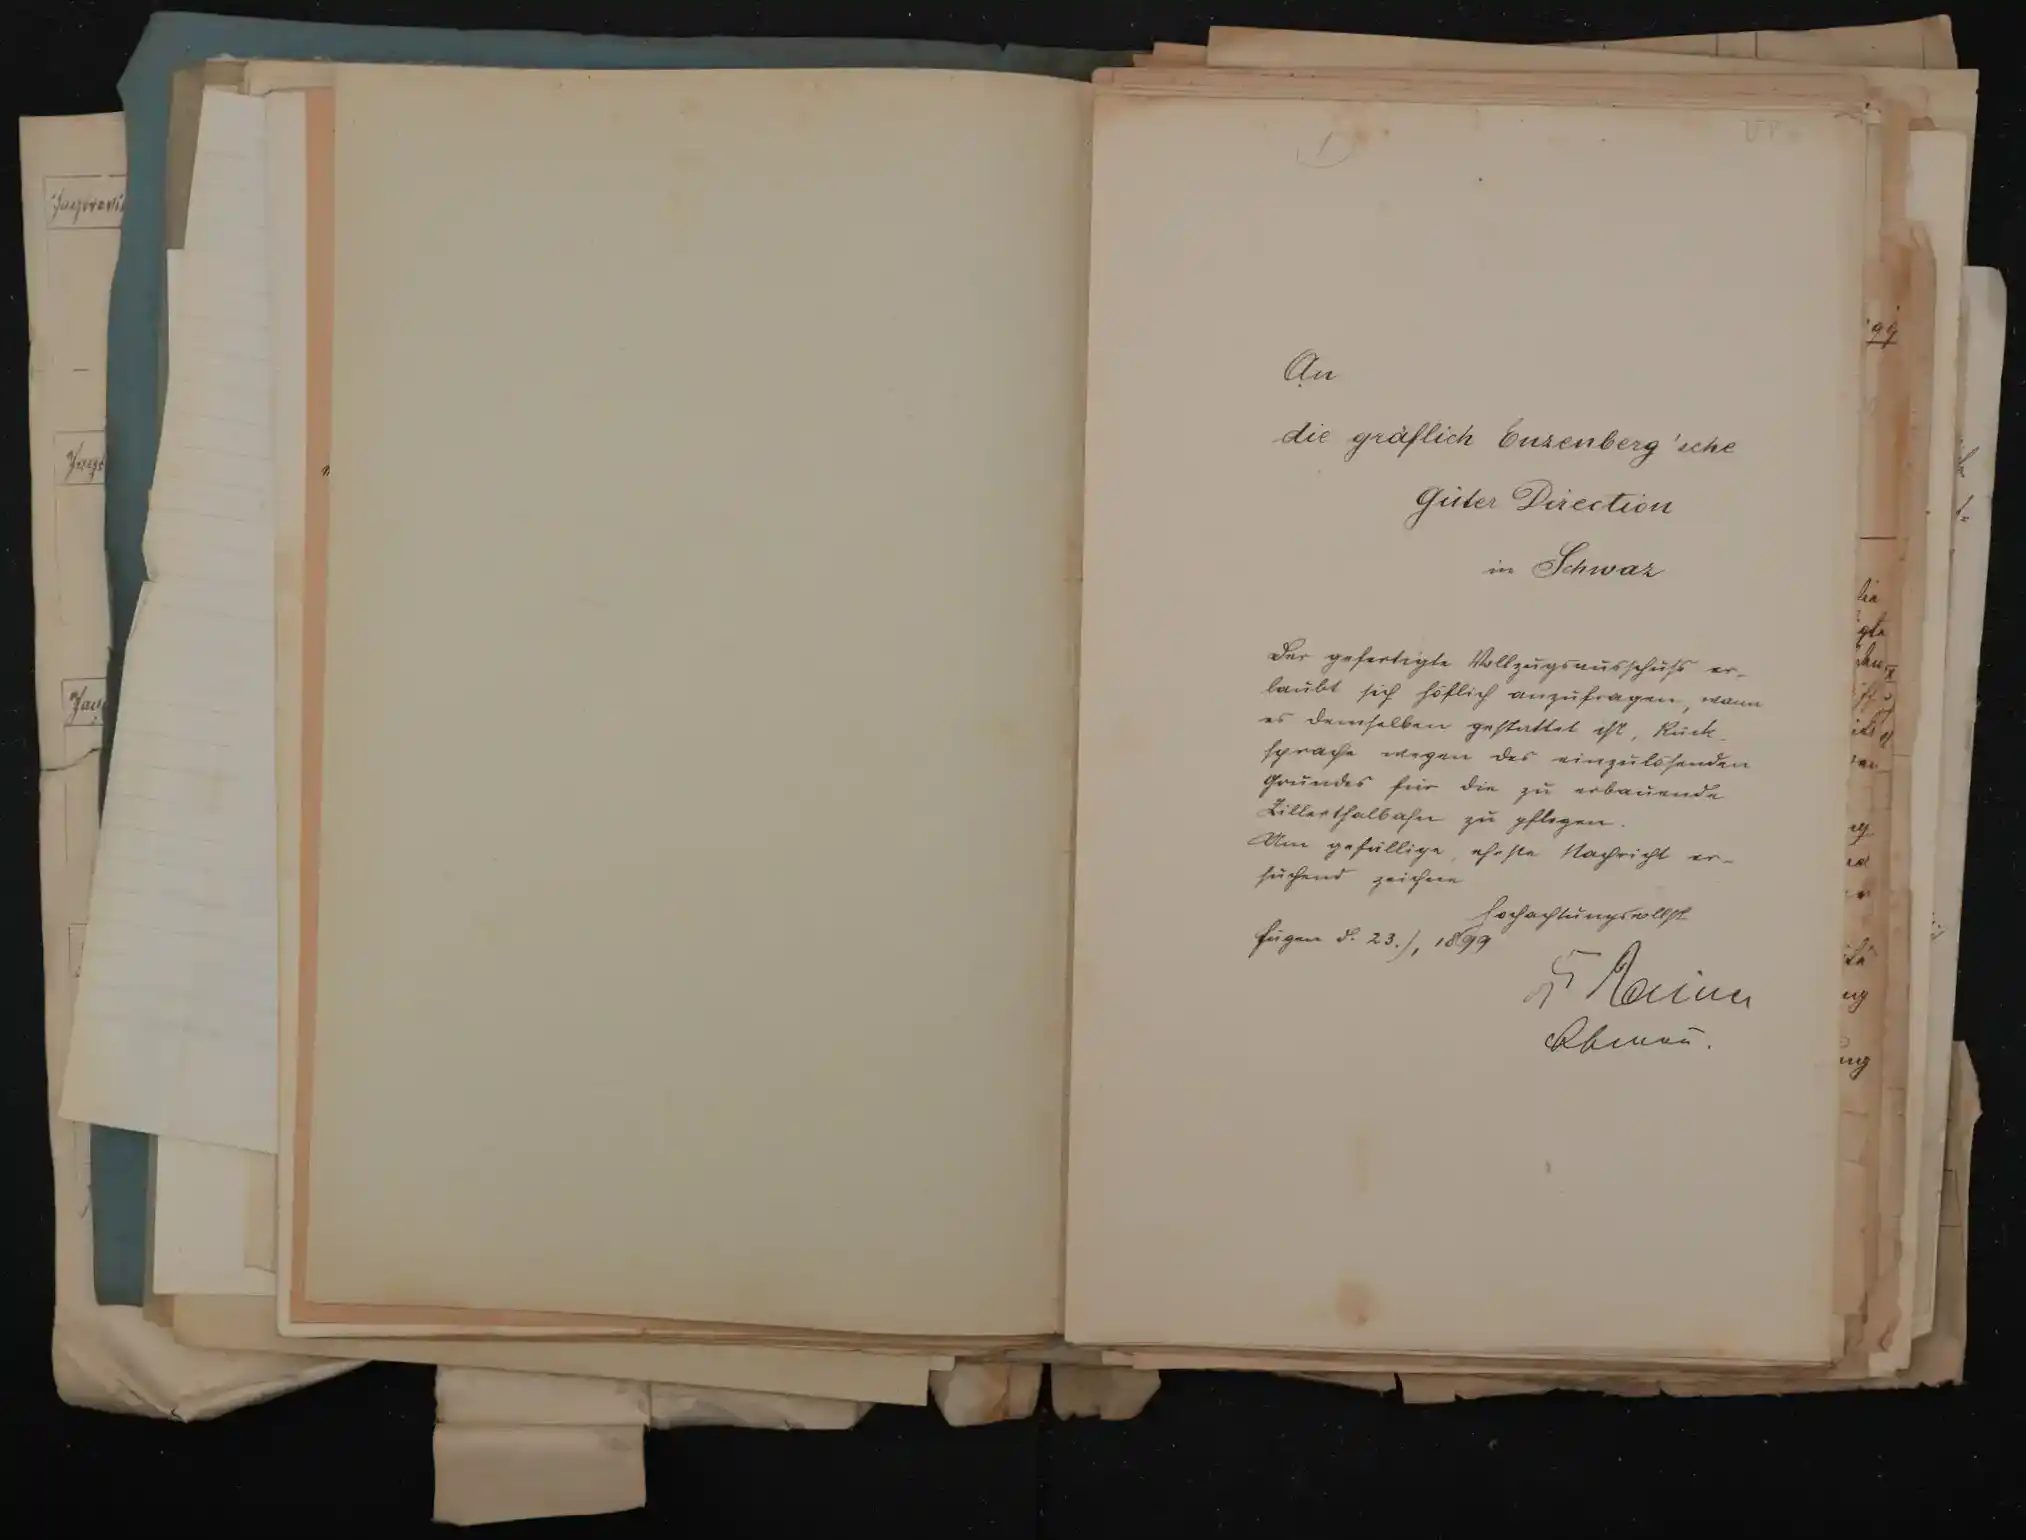 1
An
die gräflich Enzenberg'sche
Güter Direction
in Schwaz
Der gefertigte Vollzugsausschuß er-
laubt sich höflich anzufragen, wann
es demselben gestattet ist, Rück-
sprache wegen des einzulösenden
Grundes für die zu erbauende
Zillerthalbahn zu pflegen.
Um gefällige, eheste Nachricht er-
suchend zeichne
Hochachtungsvollst
Fügen d. 23./, 1899
Rainer
Obmann.
99